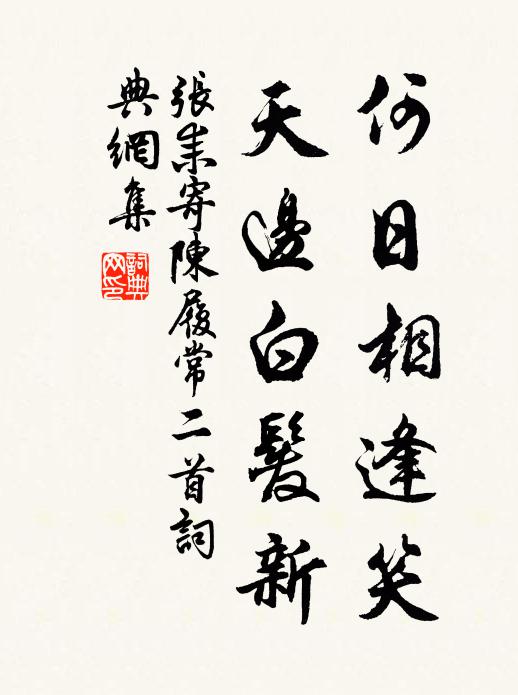 何日相逢笑
天邊白髮新
張耒寄陳履常二首詞
典網集
詞典
网印